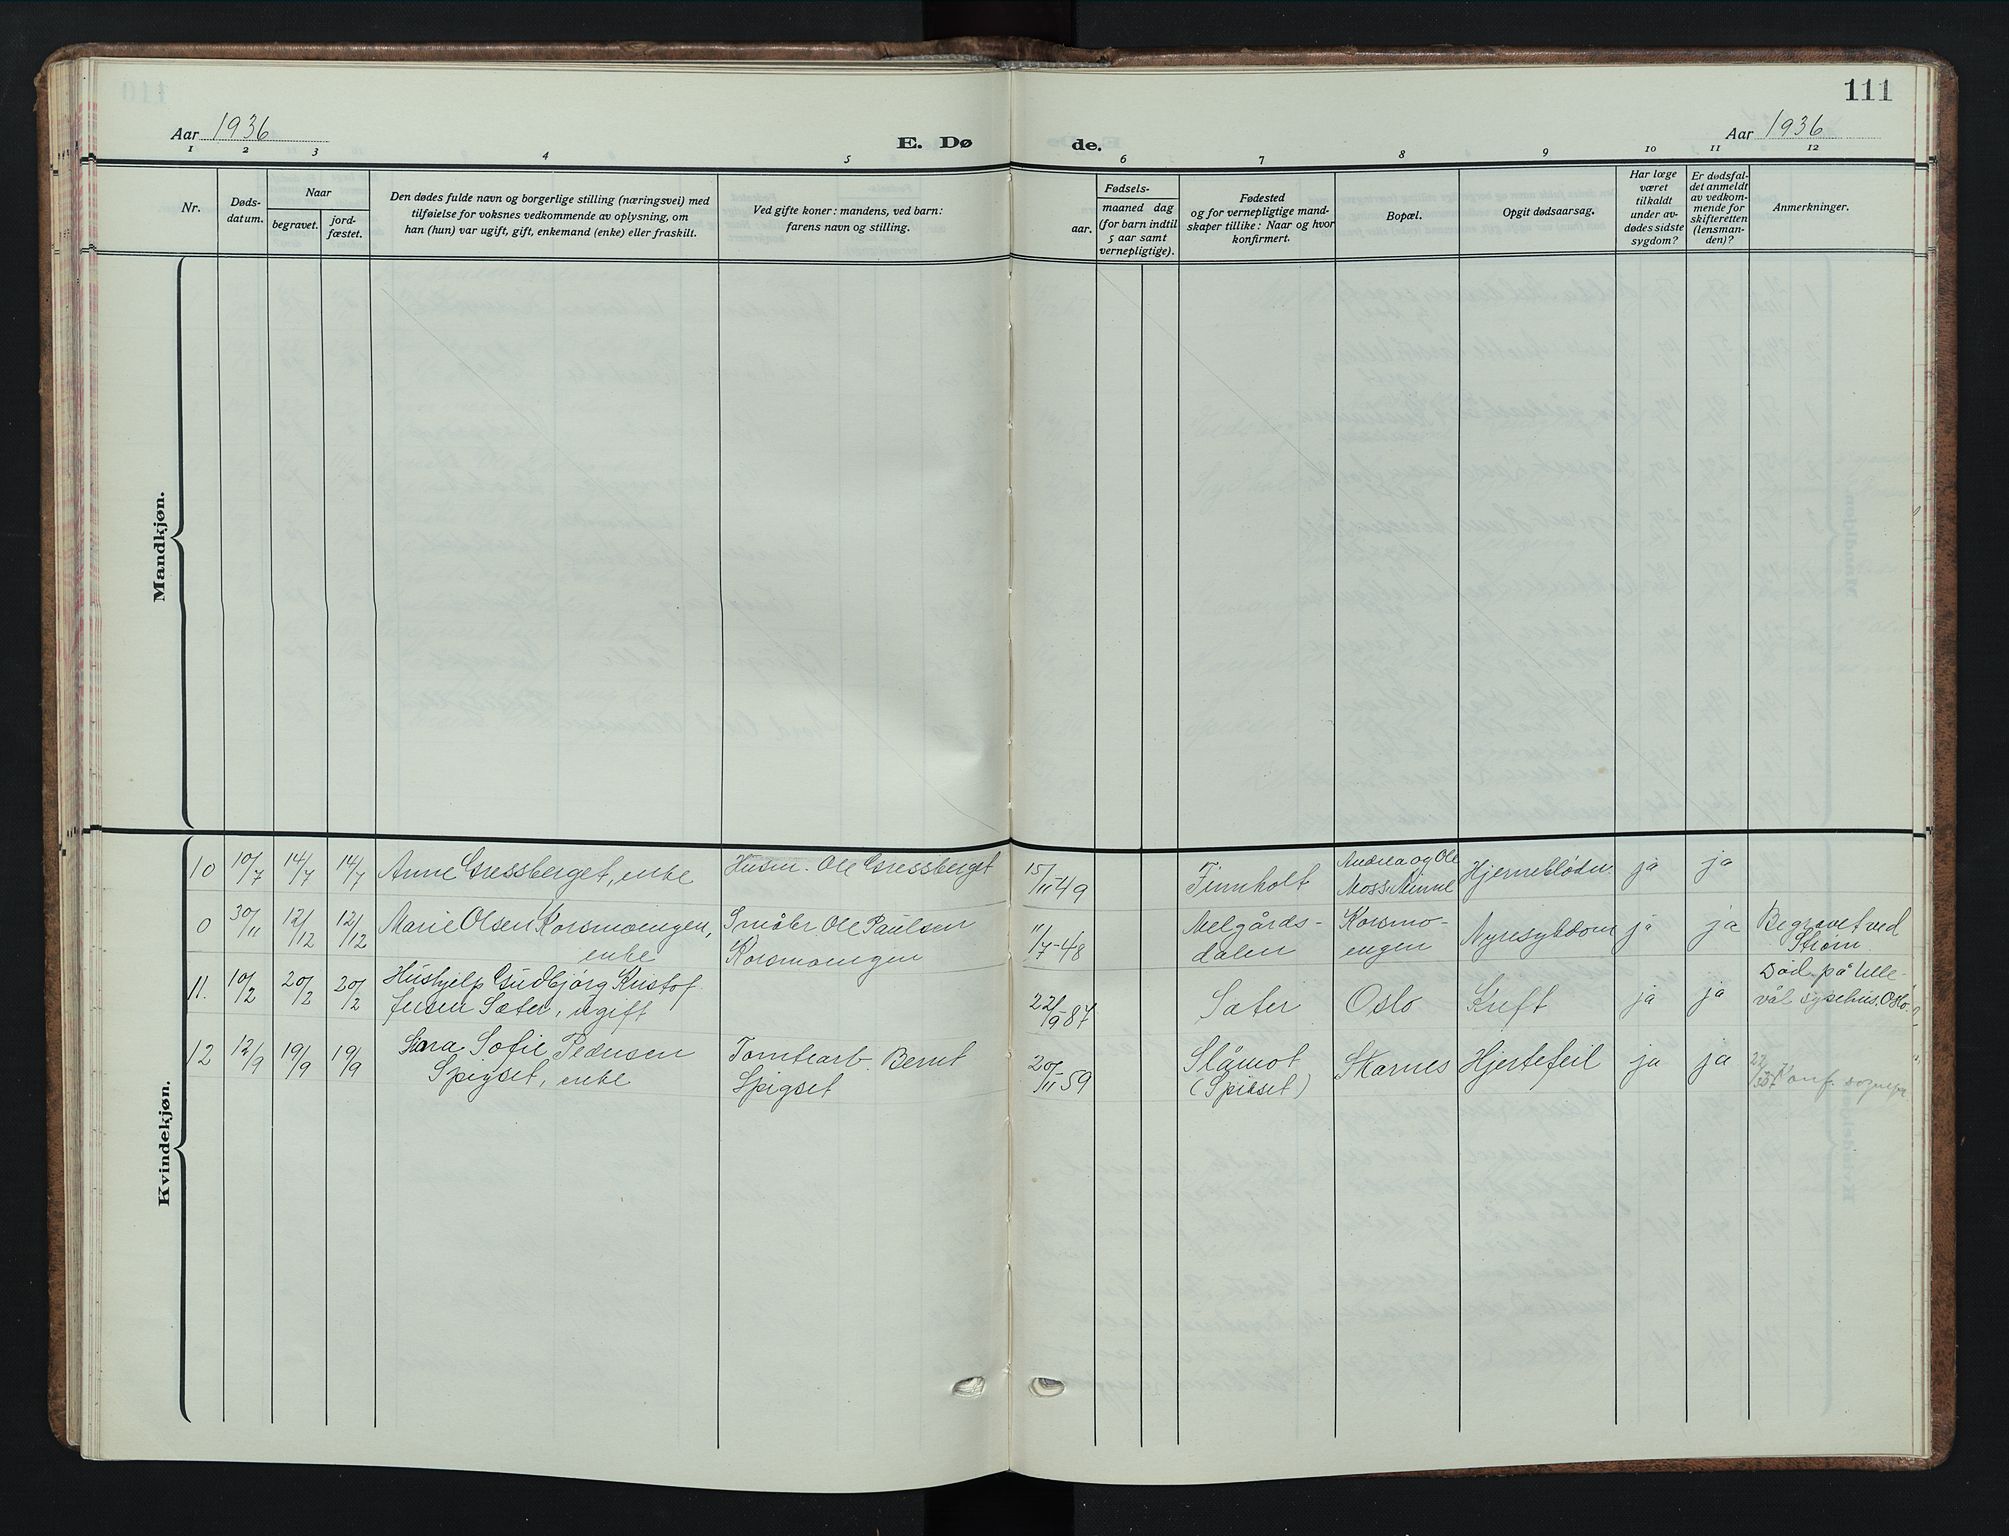 111
Aar 1936
E. Dø
de.
Aar 1936
1 2 3 4 5 6 7 8 9 10 11 12
Nr.
Døds-
datum.
Naar
begravet.
jord-
fæstet.
Den dødes fulde navn og borgerlige stilling (næringsvei) med
tilføielse for voksnes vedkommende av oplysning, om
han (hun) var ugift, gift, enkemand (enke) eller fraskilt.
Ved gifte koner: mandens, ved barn:
farens navn og stilling.
Fødsels-
aar.
maaned dag
(for barn indtil
5 aar samt
vernepligtige).
Fødested
og for vernepligtige mand-
skaper tillike: Naar og hvor
konfirmert.
Bopæl.
Opgit dødsaarsag.
Har læge
været
tilkaldt
under av-
dødes sidste
sygdom?
Er dødsfal-
det anmeldt
av vedkom-
mende for
skifteretten
(lensman-
den)?
Anmerkninger.
Mandkjøn.
Kvindekjøn.
10 10/7 14/7 14/7 Anne Gressberget, enke Husm. Ole Gressberget 15/11-49 Finnholt Andrea og Ole
Moss Minne Hjerneblødn. ja ja
0 30/11 12/12 12/12 Marie Olsen Korsmoengen,
enke Småbr. Ole Paulsen
Korsmoengen 11/7-48 Melgårds-
dalen Korsmo-
engen Nyresykdom ja ja Begravet ved
Strøm.
11. 10/2 20/2 20/2 Hushjelp Gudbjørg Kristof-
fersen Sæter, ugift 22/9-87 Sæter Oslo Kreft ja ja Død på Ulle-
vål sykehus, Oslo.
12 12/9 19/9 19/9 Sofie Pedersen
Spigset, enke Tomtearb. Bernt
Spigset 20/11-59 Slåmot
(Spikset) Skarnes Hjertefeil ja ja